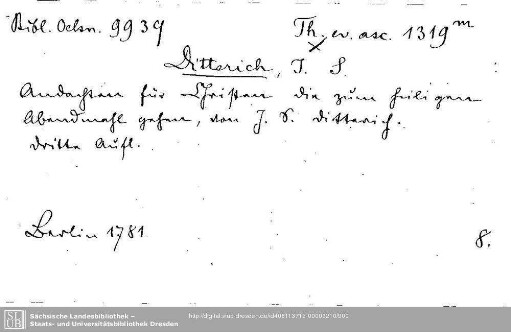 Bibl. Oelsn. 9939
Th. ev. asc. 1319m
Ditterich, J. S.
Andachten für Christen die zum heiligen
Abendmahl gehen, von J. S. Ditterich.
Dritte Aufl.
Berlin 1781
8.
Sächsische Landesbibliothek –
Staats- und Universitätsbibliothek Dresden